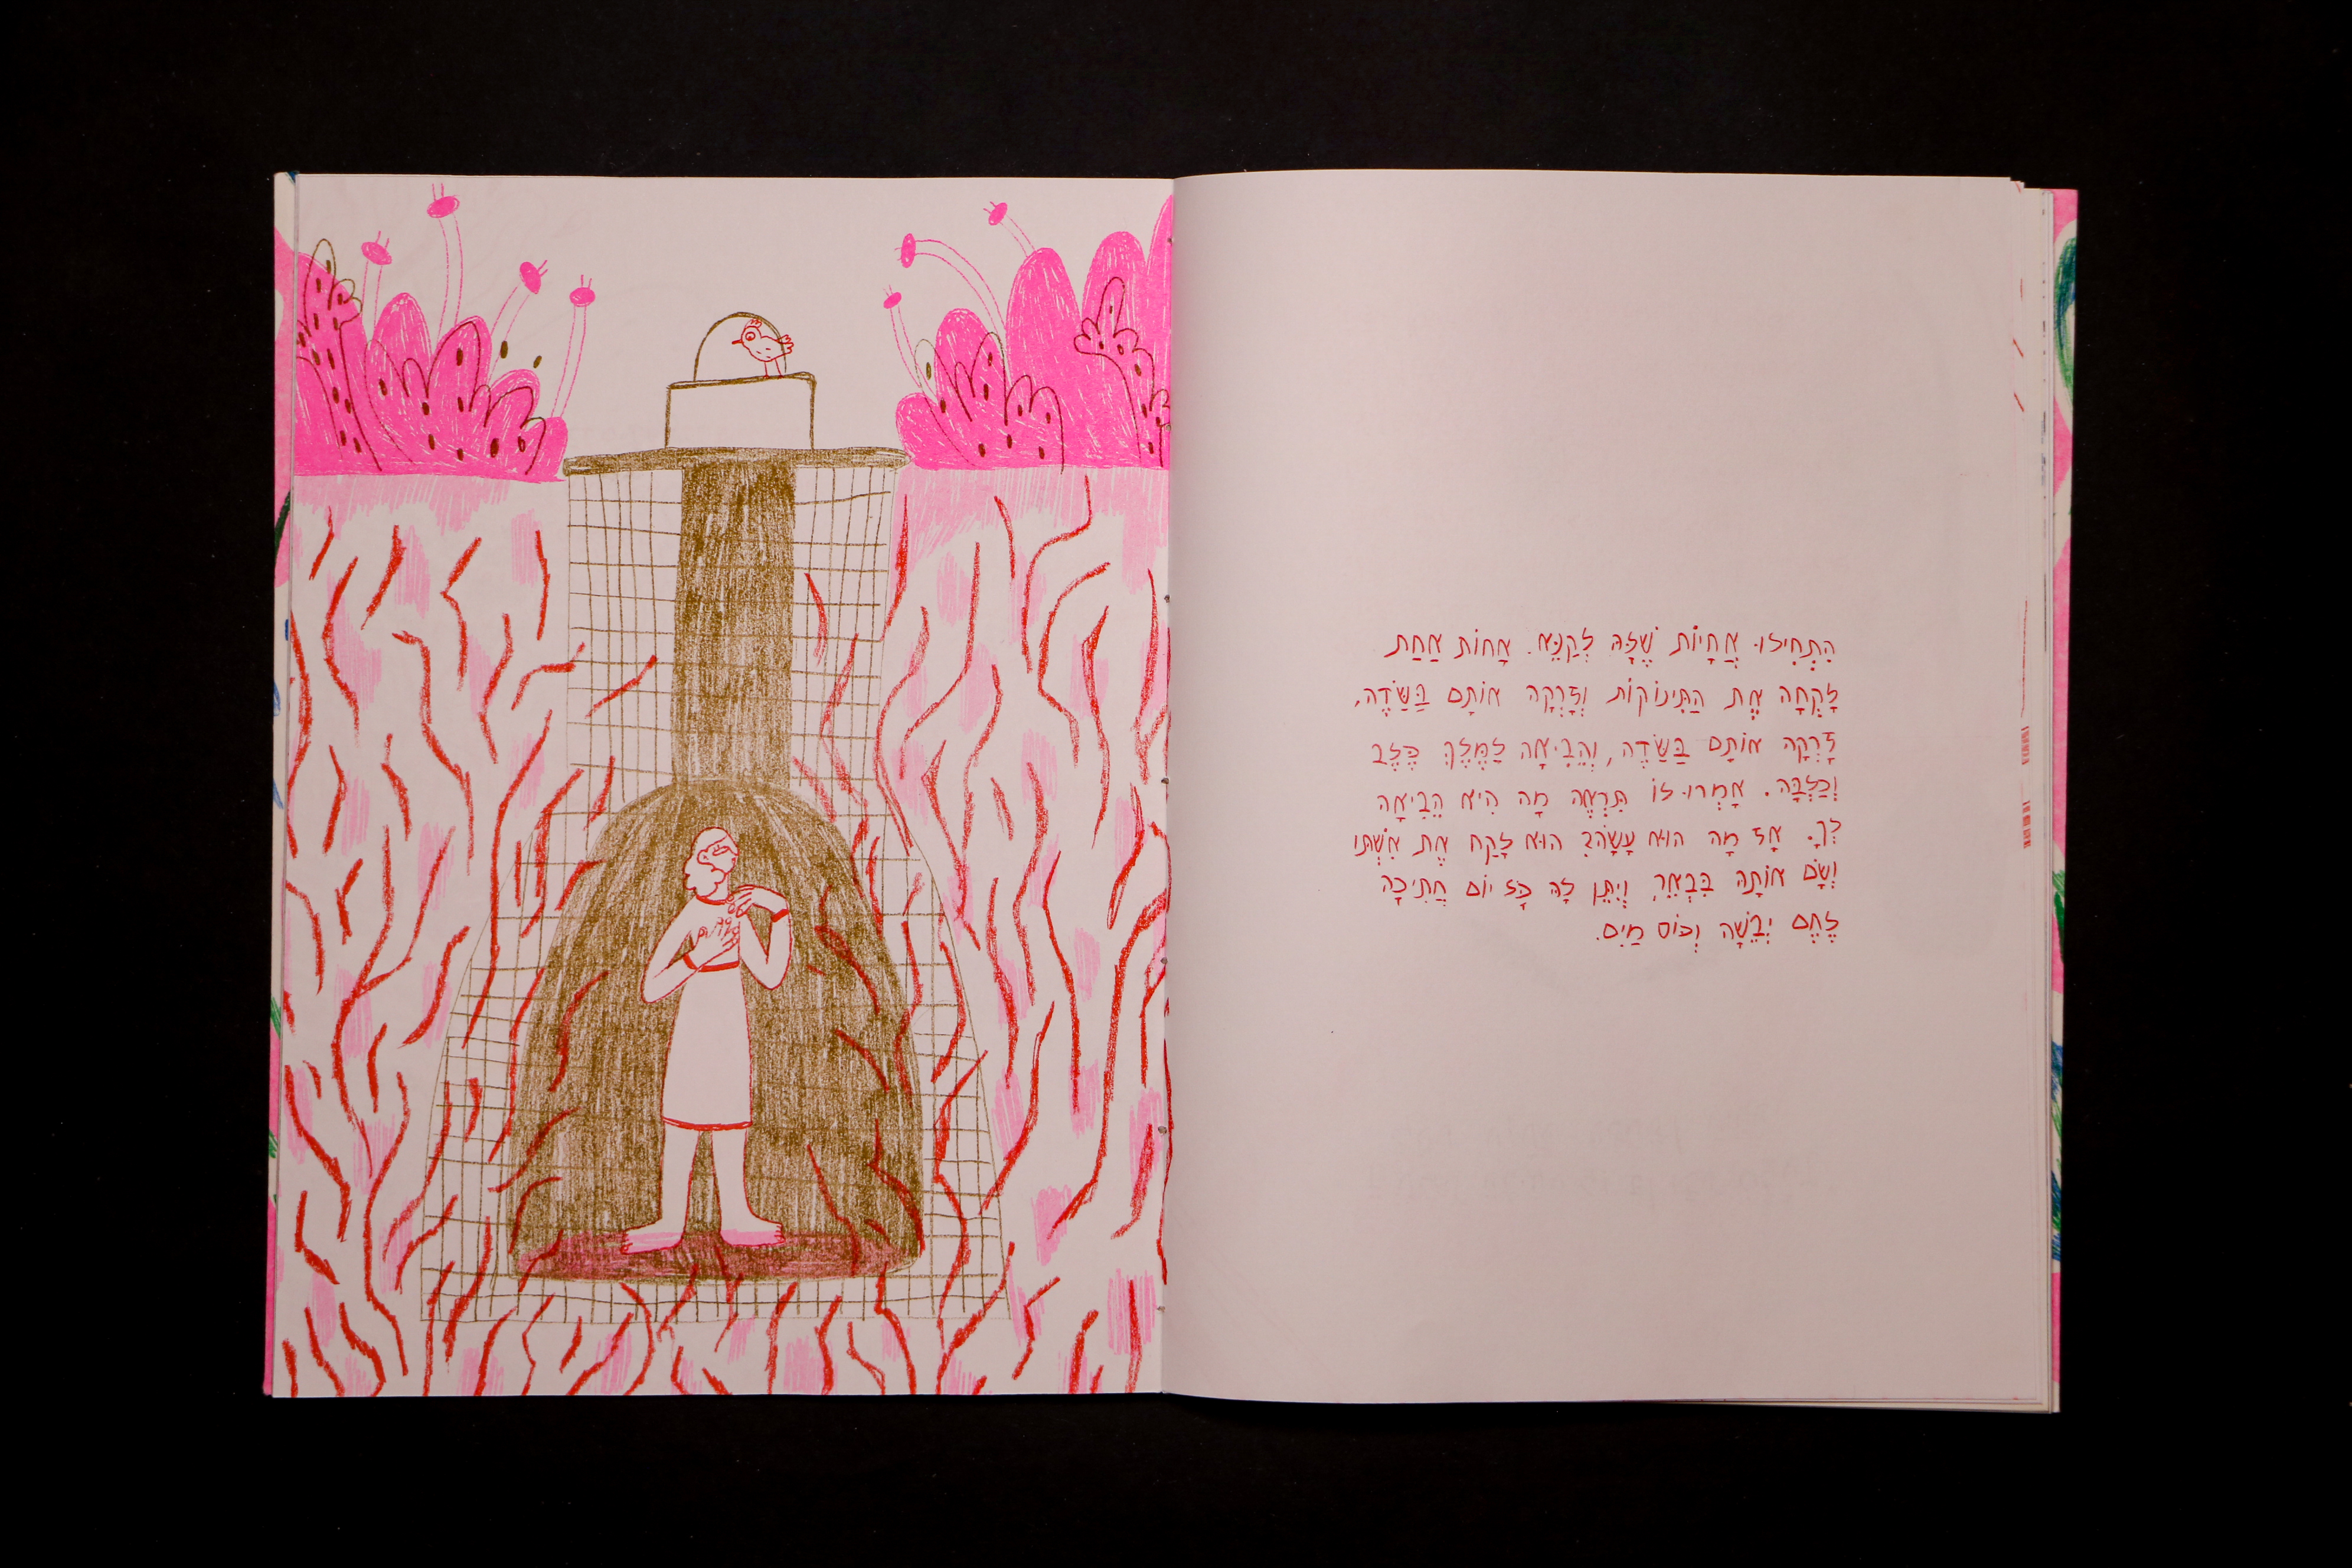 הִתְחִילוּ אֲחָיוֹת שֶׁלָּהּ לְקַנֵּא. אָחוֹת אַחַת
לָקְחָה אֶת הַתִּינוֹקוֹת וְזָרְקָה אוֹתָם בַּשָּׂדֶה,
זָרְקָה אוֹתָם בַּשָּׂדֶה, וְהֵבִיאָה לַמֶּלֶךְ כֶּלֶב
וְכַלְבָּה. אָמְרוּ לוֹ תִּרְאֶה מָה הִיא הֵבִיאָה
לְךָ. אָז מָה הוּא עָשָׂה? הוּא לָקַח אֶת אִשְׁתּוֹ
וְשָׂם אוֹתָהּ בִּבְאֵר, וְיִתֵּן לָהּ כָּל יוֹם חֲתִיכָה
לֶחֶם יְבֵשָׁה וְכוֹס מַיִם.